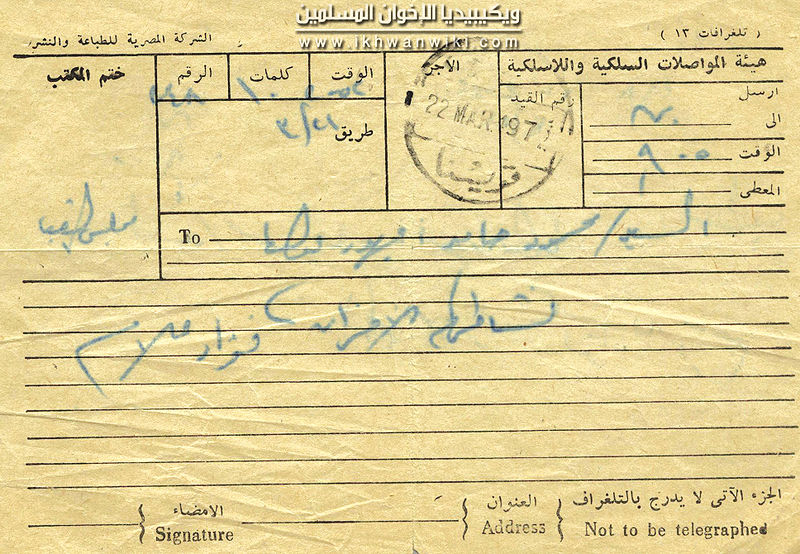 ويكيبيديا الإخوان المسلمين
www.ikhwanwiki.com
( تلغرافات ١٣ )
الشركة المصرية للطباعة والنشر
هيئة المواصلات السلكية واللاسلكية
الأجر
الوقت
كلمات
الرقم
ختم المكتب
١٠
٢٤٨
ارسل
الى
رقم القيد
22 MAR 197
قويسنا
طريق
٣/٢١
الوقت
٩
المعطى
To
السيد / محمد حامد أبو
نشاطركم الاحزان
فؤاد علام
الجزء الآتى لا يدرج بالتلغراف
العنوان
الامضاء
Not to be telegraphed
Address
Signature